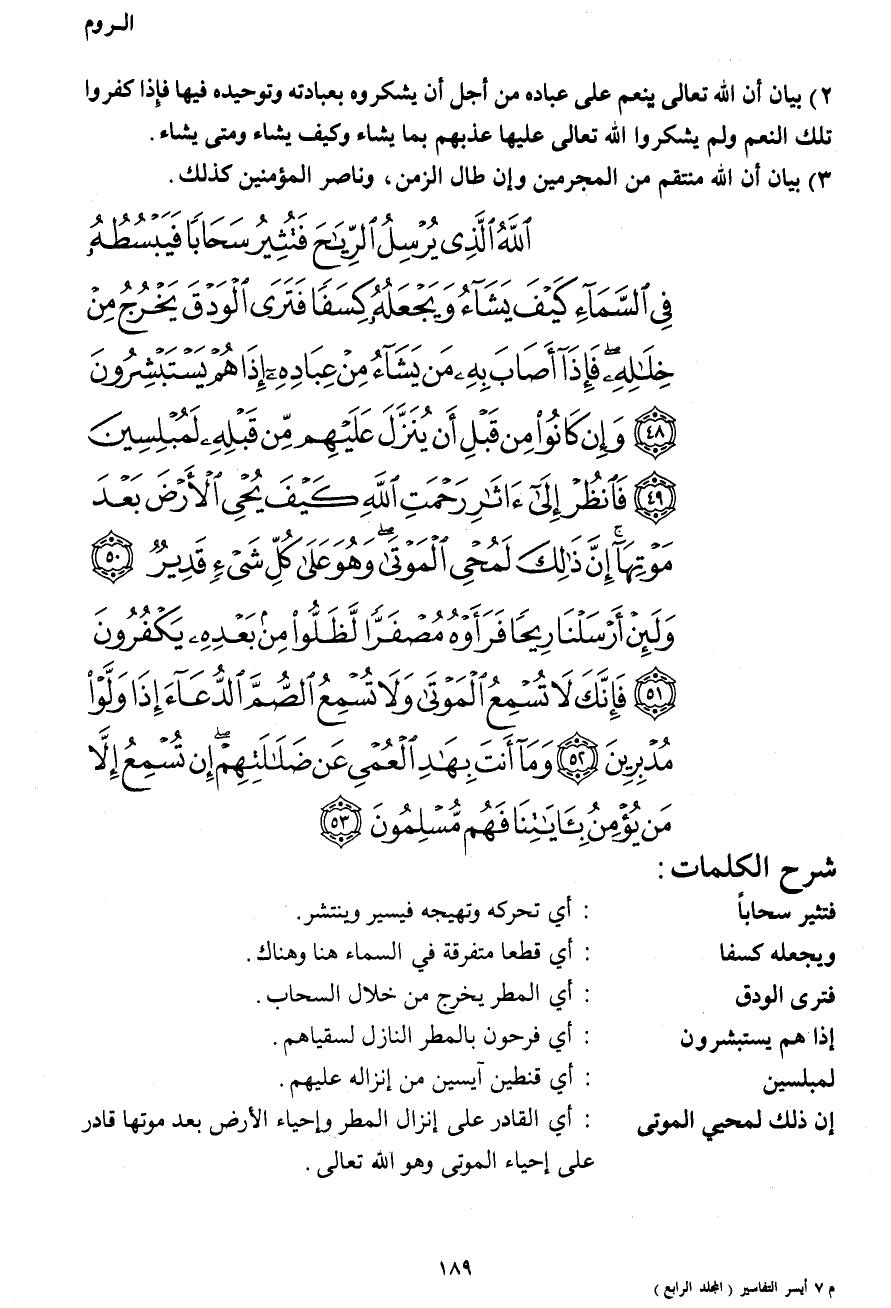 الـروم
٢) بيان أن الله تعالى ينعم على عباده من أجل أن يشكروه بعبادته وتوحيده فيها فإذا كفروا
تلك النعم ولم يشكروا الله تعالى عليها عذبهم بما يشاء وكيف يشاء ومتى يشاء.
٣) بيان أن الله منتقم من المجرمين وإن طال الزمن، وناصر المؤمنين كذلك.
ٱللَّهُ ٱلَّذِى يُرْسِلُ ٱلرِّيَٰحَ فَتُثِيرُ سَحَابًا فَيَبْسُطُهُۥ
فِى ٱلسَّمَآءِ كَيْفَ يَشَآءُ وَيَجْعَلُهُۥ كِسَفًا فَتَرَى ٱلْوَدْقَ يَخْرُجُ مِنْ
خِلَٰلِهِۦۖ فَإِذَآ أَصَابَ بِهِۦ مَن يَشَآءُ مِنْ عِبَادِهِۦٓ إِذَا هُمْ يَسْتَبْشِرُونَ
٤٨ وَإِن كَانُوا۟ مِن قَبْلِ أَن يُنَزَّلَ عَلَيْهِم مِّن قَبْلِهِۦ لَمُبْلِسِينَ
٤٩ فَٱنظُرْ إِلَىٰٓ ءَاثَٰرِ رَحْمَتِ ٱللَّهِ كَيْفَ يُحْىِ ٱلْأَرْضَ بَعْدَ
مَوْتِهَآۚ إِنَّ ذَٰلِكَ لَمُحْىِ ٱلْمَوْتَىٰۖ وَهُوَ عَلَىٰ كُلِّ شَىْءٍ قَدِيرٌ ٥٠
وَلَئِنْ أَرْسَلْنَا رِيحًا فَرَأَوْهُ مُصْفَرًّا لَّظَلُّوا۟ مِنۢ بَعْدِهِۦ يَكْفُرُونَ
٥١ فَإِنَّكَ لَا تُسْمِعُ ٱلْمَوْتَىٰ وَلَا تُسْمِعُ ٱلصُّمَّ ٱلدُّعَآءَ إِذَا وَلَّوْا۟
مُدْبِرِينَ ٥٢ وَمَآ أَنتَ بِهَٰدِ ٱلْعُمْىِ عَن ضَلَٰلَتِهِمْۖ إِن تُسْمِعُ إِلَّا
مَن يُؤْمِنُ بِـَٔايَٰتِنَا فَهُم مُّسْلِمُونَ ٥٣
شرح الكلمات:
فتثير سحاباً : أي تحركه وتهيجه فيسير وينتشر.
ويجعله كسفا : أي قطعا متفرقة في السماء هنا وهناك.
فترى الودق : أي المطر يخرج من خلال السحاب.
إذا هم يستبشرون : أي فرحون بالمطر النازل لسقياهم.
لمبلسين : أي قنطين آيسين من إنزاله عليهم.
إن ذلك لمحيي الموتى : أي القادر على إنزال المطر وإحياء الأرض بعد موتها قادر
على إحياء الموتى وهو الله تعالى.
١٨٩
م ٧ أيسر التفاسير ( المجلد الرابع )